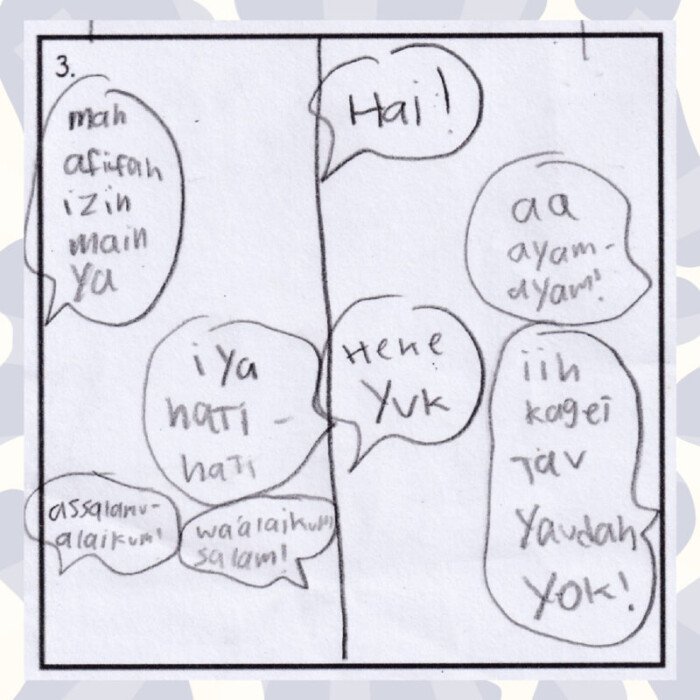 3.
mah
afifah
izin
main
ya
iya
hati-
hati
assalamu-
alaikum!
wa'alaikum
salam!
Hai!
aa
ayam-
ayam!
Hehe
Yuk
iih
kaget
Tau
Yaudah
Yok!